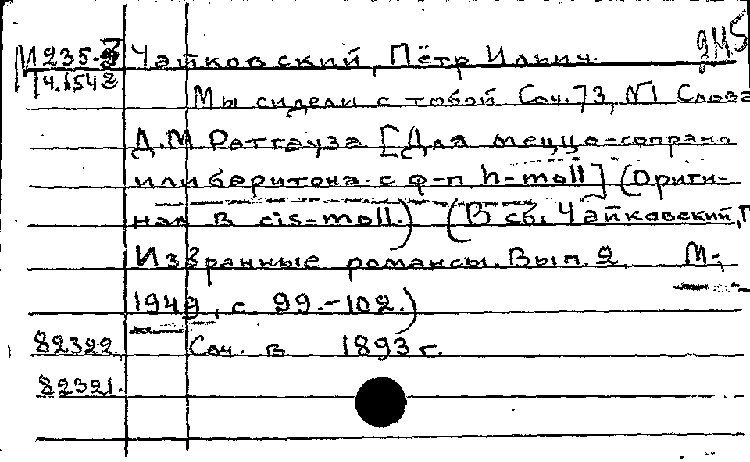 М 235-3 Чайковский, Пётр Ильич.
Мы сидели с тобой Соч. 73, №1 Слова
Д.М Ратгауза [Для меццо-сопрано
или баритона с ф-п h-moll] (Ориги-
нал в cis-moll.) (В сб. Чайковский, П
Избранные романсы. Вып. 2. М.,
1949, с. 99.-102.)
82322. Соч. в 1893 г.
82321.